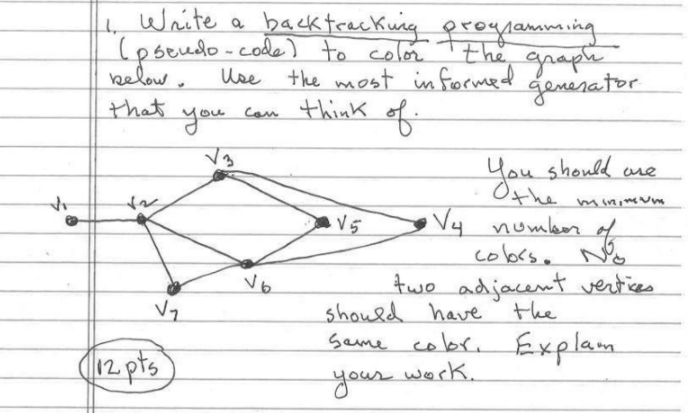 1. Write a backtracking programming
(pseudo-code) to color the graph
below. Use the most informed generator
that you can think of.
V1
V2
V3
V5
V4
V6
V7
You should use
the minimum
number of
colors. No
two adjacent vertices
should have the
same color. Explain
your work.
12 pts